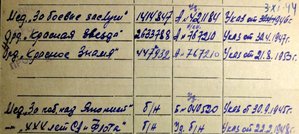 3/XI-44
Мед. „За боевые заслуги" 1414847 А-421184 Указ от
Орд. „Красная Звезда" 2633788 А-787210 Указ от 30.4.1947г.
Орд. „Красное Знамя" 447932 А-767210 Указ от 21.8.1953г.
Мед. „За поб. над Японией" б/н Указ от 30.9.1945г
—„— „XXX лет СА и Флота" б/н Уд. б/н Указ от 22.2.1948г